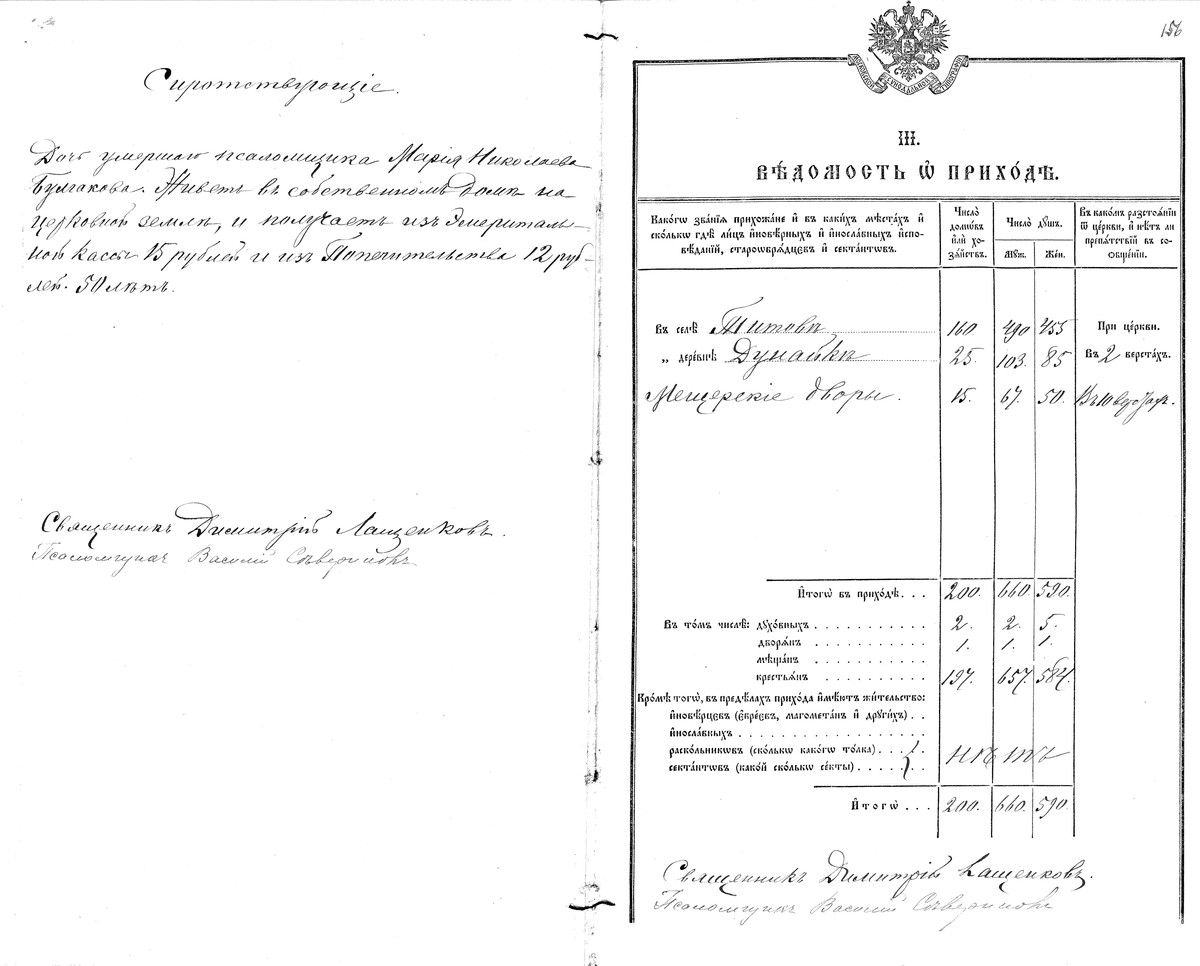 Сиротствующіе.
Дочь умершаго псаломщика Марія Николаева
Булгакова. Живетъ въ собственномъ домѣ на
церковной землѣ, и получаетъ изъ Эмериталь-
ной кассы 15 рублей и изъ Попечительства 12 руб-
лей. 50 лѣтъ.
Священникъ Димитрій Лащенковъ.
Псаломщикъ Василій Сѣвериновъ
156
МОСКОВСКОЙ СѴНОДАЛЬНОЙ ТИПОГРАФІИ
III.
ВѢ́ДОМОСТЬ Ѽ ПРИХО́ДѢ.
Како́гѡ зва́нїѧ прихожа́не и҆ въ каки́хъ мѣ́стахъ и҆
ско́лькѡ гдѣ̀ ли́цъ и҆новѣ́рныхъ и҆ и҆носла́вныхъ и҆спо-
вѣ́данїй, староѡбрѧ́дцевъ и҆ секта́нтѡвъ.
Число̀
домѡ́въ
и҆лѝ хо-
зѧ́йствъ.
Число̀ дꙋ́шъ.
Мꙋж.
Жен.
Въ како́мъ разстоѧ́нїи
ѿ це́ркви, и҆ нѣ́тъ ли
препѧ́тствїй въ со-
ѻбще́нїи.
Въ селѣ̀ Титовѣ 160. 490 455 При це́ркви.
„ дере́внѣ Дунайкѣ 25. 103. 85 Въ 2 верста́хъ.
Мещерскіе дворы. 15. 67. 50. Въ 10 верстах.
И҆тогѡ̀ въ прихо́дѣ. . . 200. 660. 590.
Въ то́мъ числѣ̀: дꙋхо́вныхъ . . . . . . . . . . . 2. 2. 5.
дворѧ́нъ . . . . . . . . . . . 1. 1. 1.
мѣща́нъ . . . . . . . . . . .
крестьѧ́нъ . . . . . . . . . . 197. 657. 584.
Кро́мѣ тогѡ̀, въ предѣ́лахъ прихо́да и҆мѣ́ютъ жи́тельство:
и҆новѣ́рцевъ (є҆вре́евъ, магомета́нъ и҆ дрꙋги́хъ) . .
и҆носла́вныхъ . . . . . . . . . . . . . . . . . .
раско́льникѡвъ (ско́лькѡ како́гѡ то́лка) . . . .
секта́нтѡвъ (како́й ско́лькѡ се́кты) . . . . . . нѣтъ
И҆тогѡ̀ . . . 200. 660. 590.
Священникъ Димитрій Лащенковъ.
Псаломщикъ Василій Сѣвериновъ